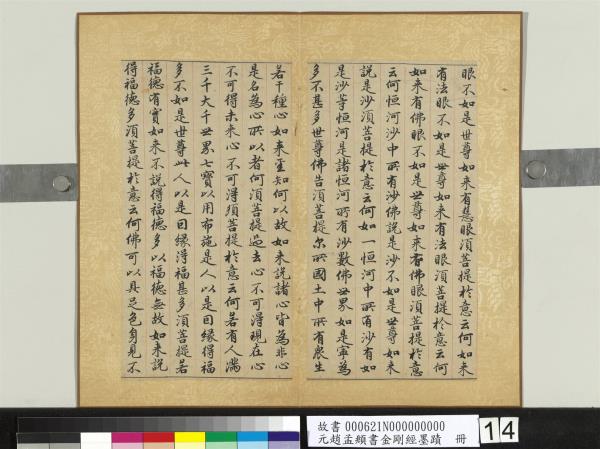 眼不如是世尊如来有慧眼湏菩提扵意云何如来
有法眼不如是世尊如来有法眼湏菩提扵意云何
如来有佛眼不如是世尊如来有佛眼湏菩提扵意
云何恒河沙中所有沙佛說是沙不如是世尊如来
說是沙湏菩提扵意云何如一恒河中所有沙有如
是沙等恒河是諸恒河所有沙數佛世界如是寧為
多不甚多世尊佛告湏菩提尔所國土中所有衆生
若干種心如来悉知何以故如来說諸心皆為非心
是名為心所以者何湏菩提過去心不可得現在心
不可得未来心不可得須菩提扵意云何若有人滿
三千大千世界七寶以用布施是人以是因縁得福
多不如是世尊此人以是因縁得福甚多湏菩提若
福德有實如来不說得福德多以福德無故如来說
得福德多湏菩提扵意云何佛可以具足色身見不
故書 000621N000000000
元趙孟頫書金剛經墨蹟 冊
14